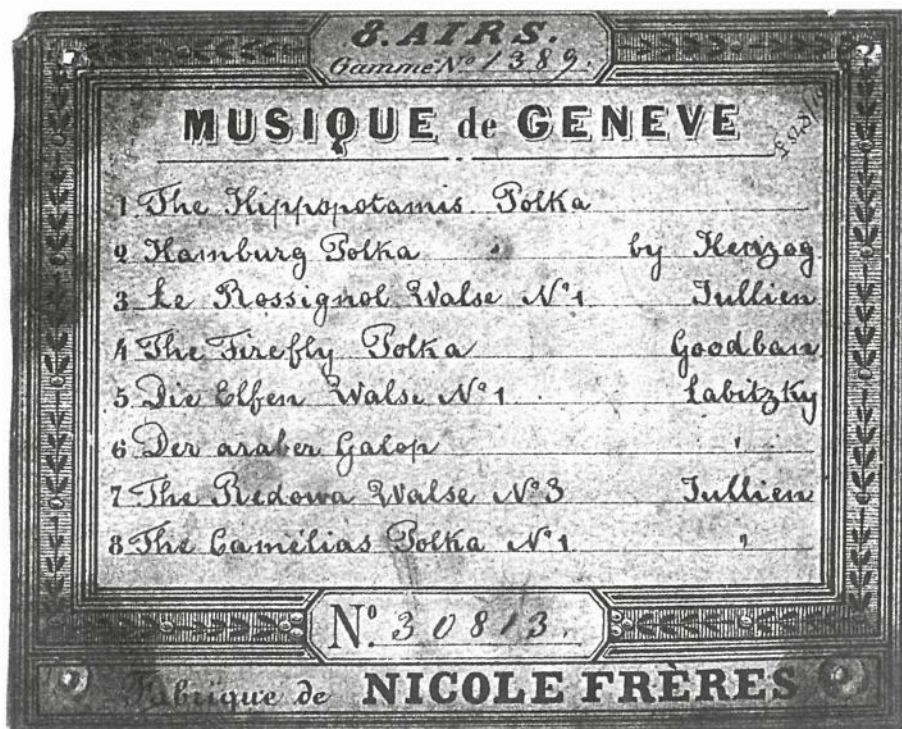 8. AIRS.
Gamme No 1389.
MUSIQUE de GENEVE
1 The Hippopotamis Polka
2 Hamburg Polka " by Herizog
3 Le Rossignol Walse No 1 Jullien
4 The Firefly Polka Goodban
5 Die Elfen Walse No 1 Labitzky
6 Der araber Galop "
7 The Redowa Walse No 3 Jullien
8 The Camélias Polka No 1 "
No. 30813.
Fabrique de NICOLE FRÈRES